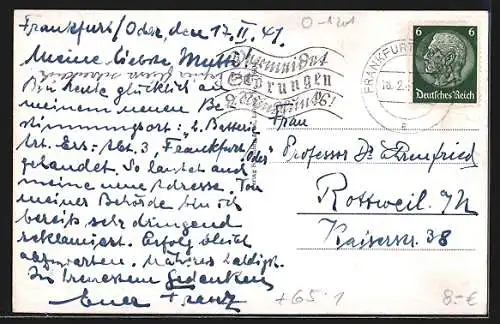 Frankfurt/Oder, den 17. II. 41.
Meine liebe Mutti!
Bin heute glücklich an
meinem neuen Be-
stimmungsort: 2. Batterie
Art. Ers. Abt. 3, Frankfurt
Oder"
gelandet. So lautet auch
meine neue Adresse. Von
meiner Behörde bin ich
bereits sehr dringend
reklamiert. Erfolg bleibt
abzuwarten. Näheres baldigst.
In treuestem Gedenken
Euer Franz
0-1201
Vermeidet
Störungen
FRANKFURT
18.2.
6 6
Deutsches Reich
Frau
Professor Dr.
Rottweil a/N
Kaiserstr. 38
+65.1
8.-€